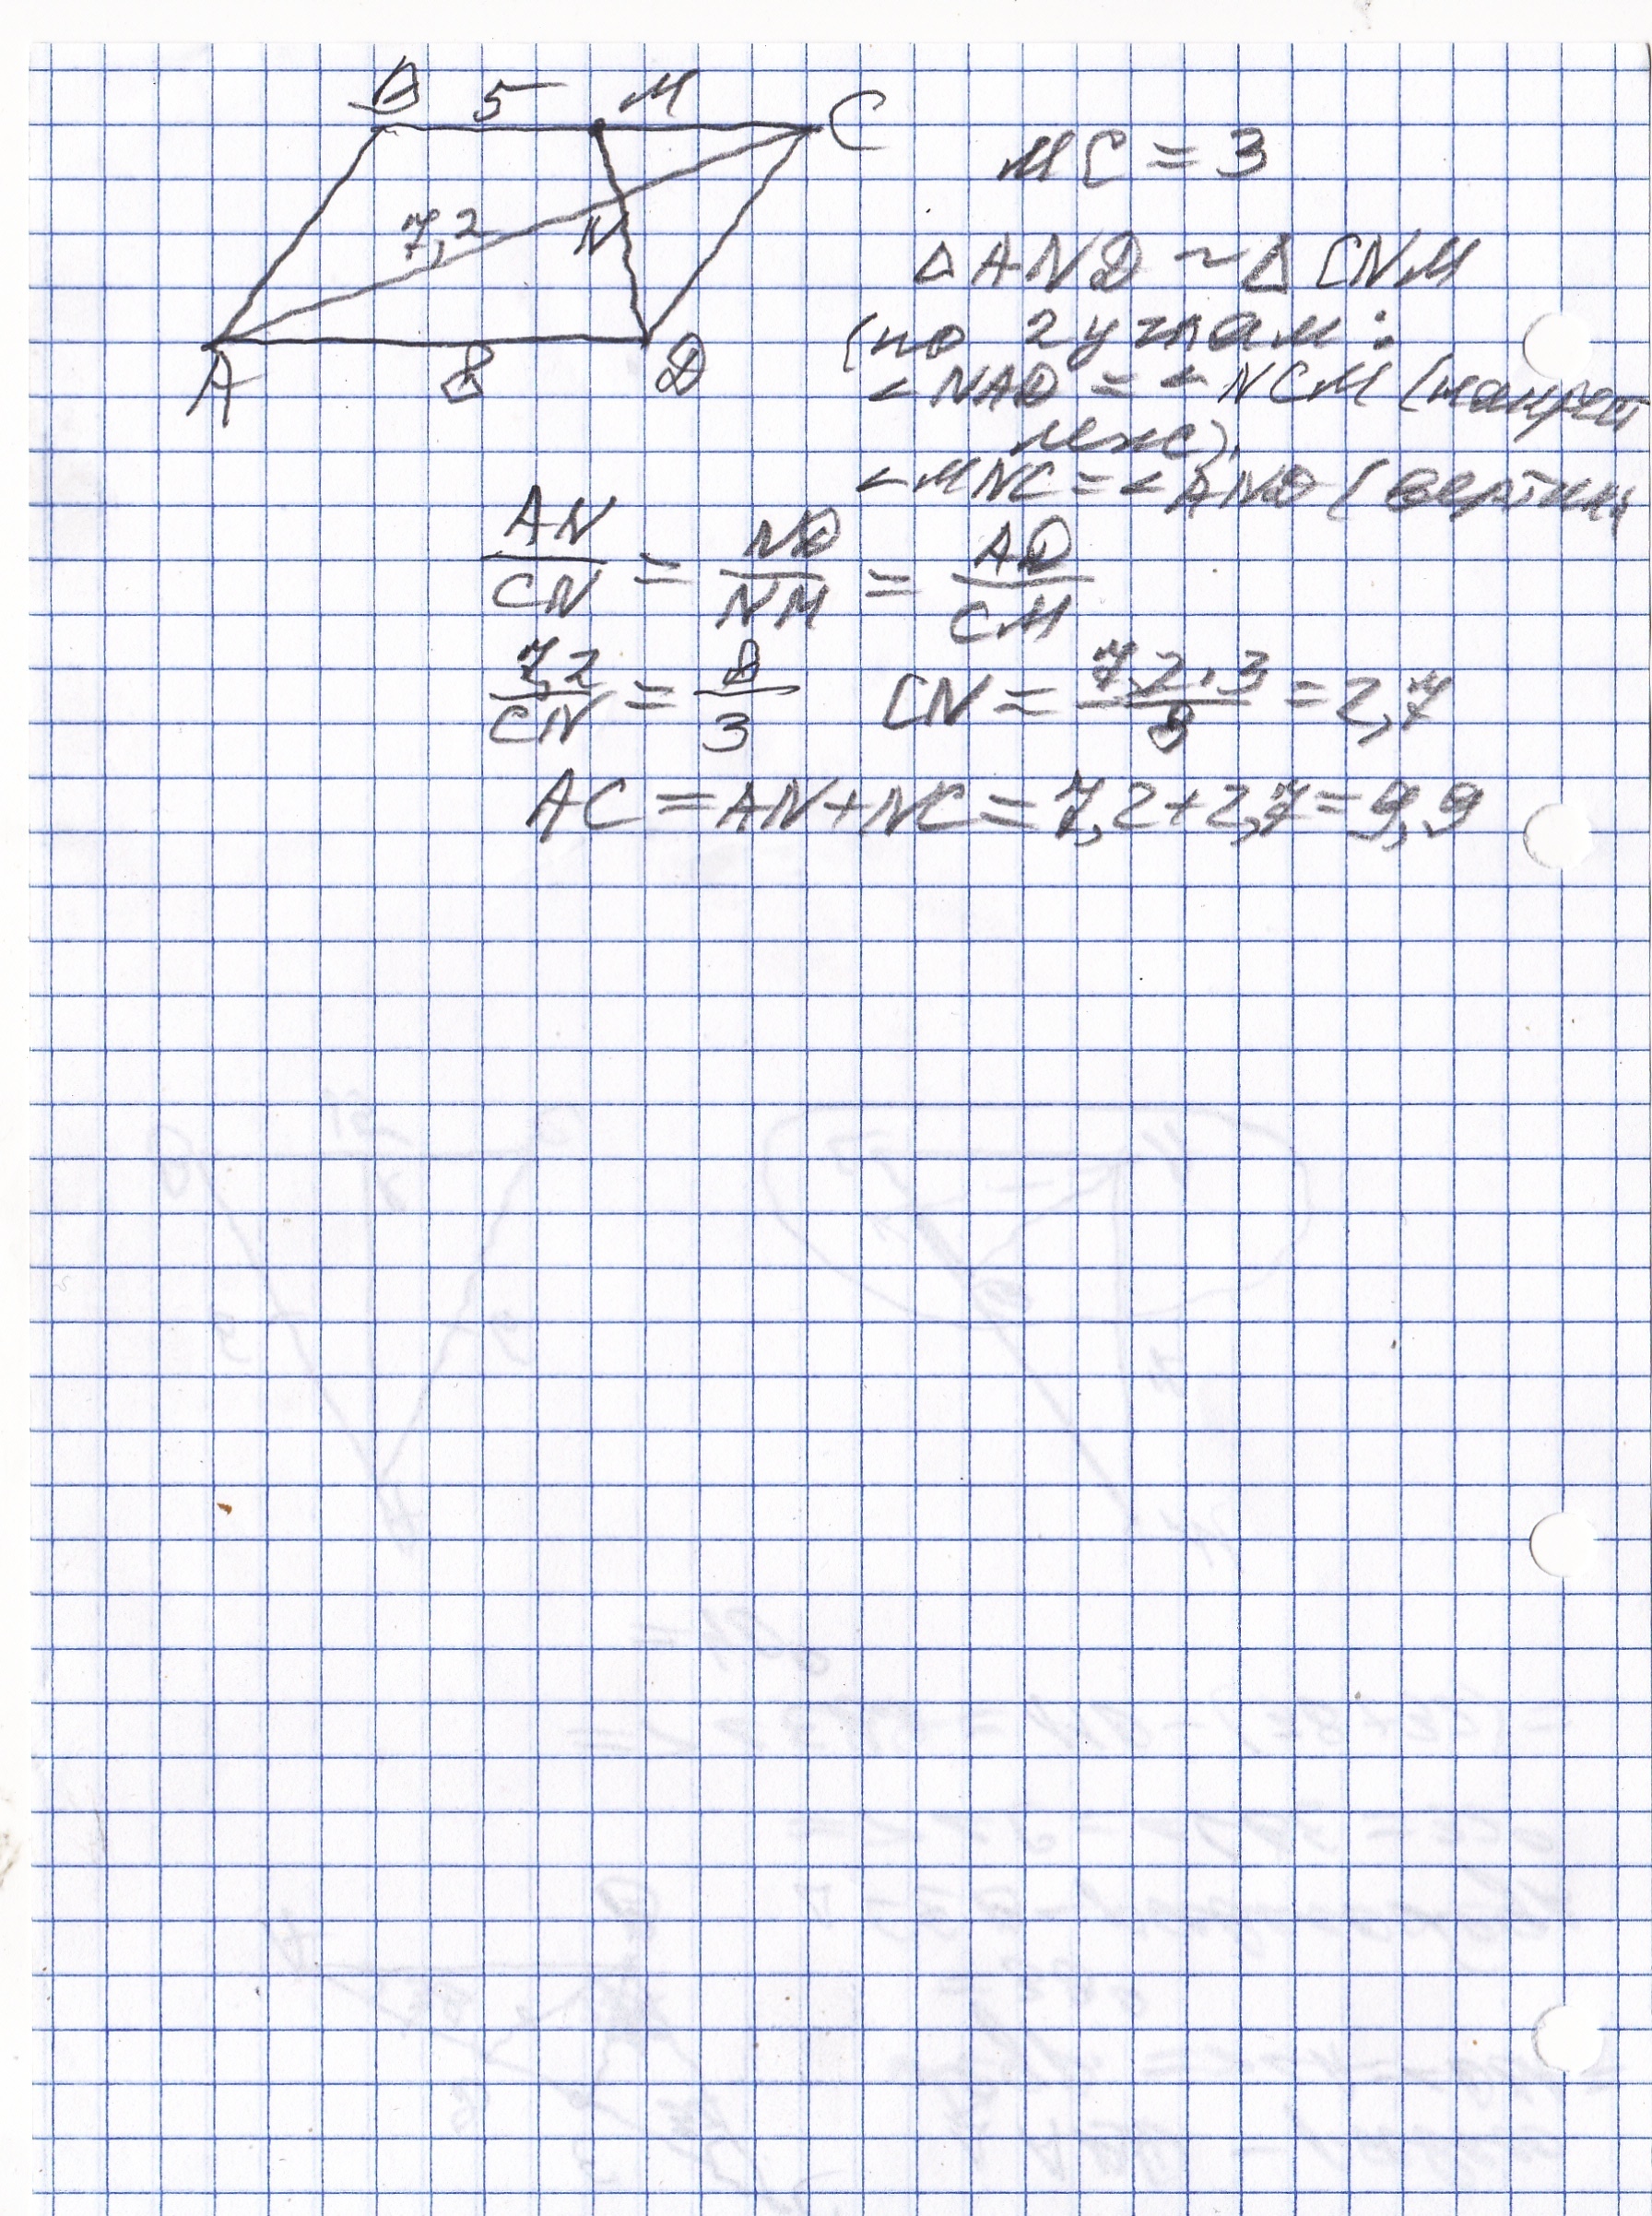 B 5 M C
7,2 N
A 8 D
MC = 3
△ AND ~ △ CNM
(по 2 углам:
∠NAD = ∠NCM (накрест
леж),
∠MNC = ∠AND (вертик
AN/CN = ND/NM = AD/CM
7,2/CN = 8/3 CN = 7,2·3/8 = 2,7
AC = AN+NC = 7,2+2,7=9,9